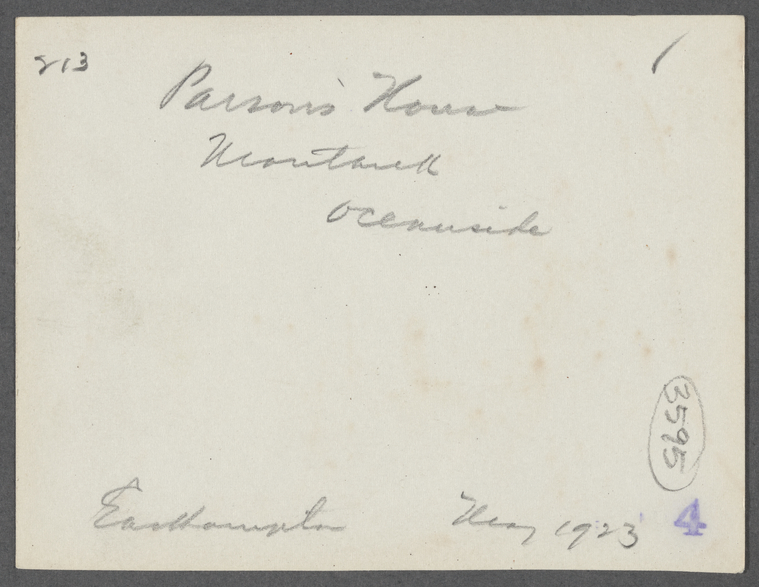 213
Parson's House
Montauk
Oceanside
3595
Easthampton May 1923
4